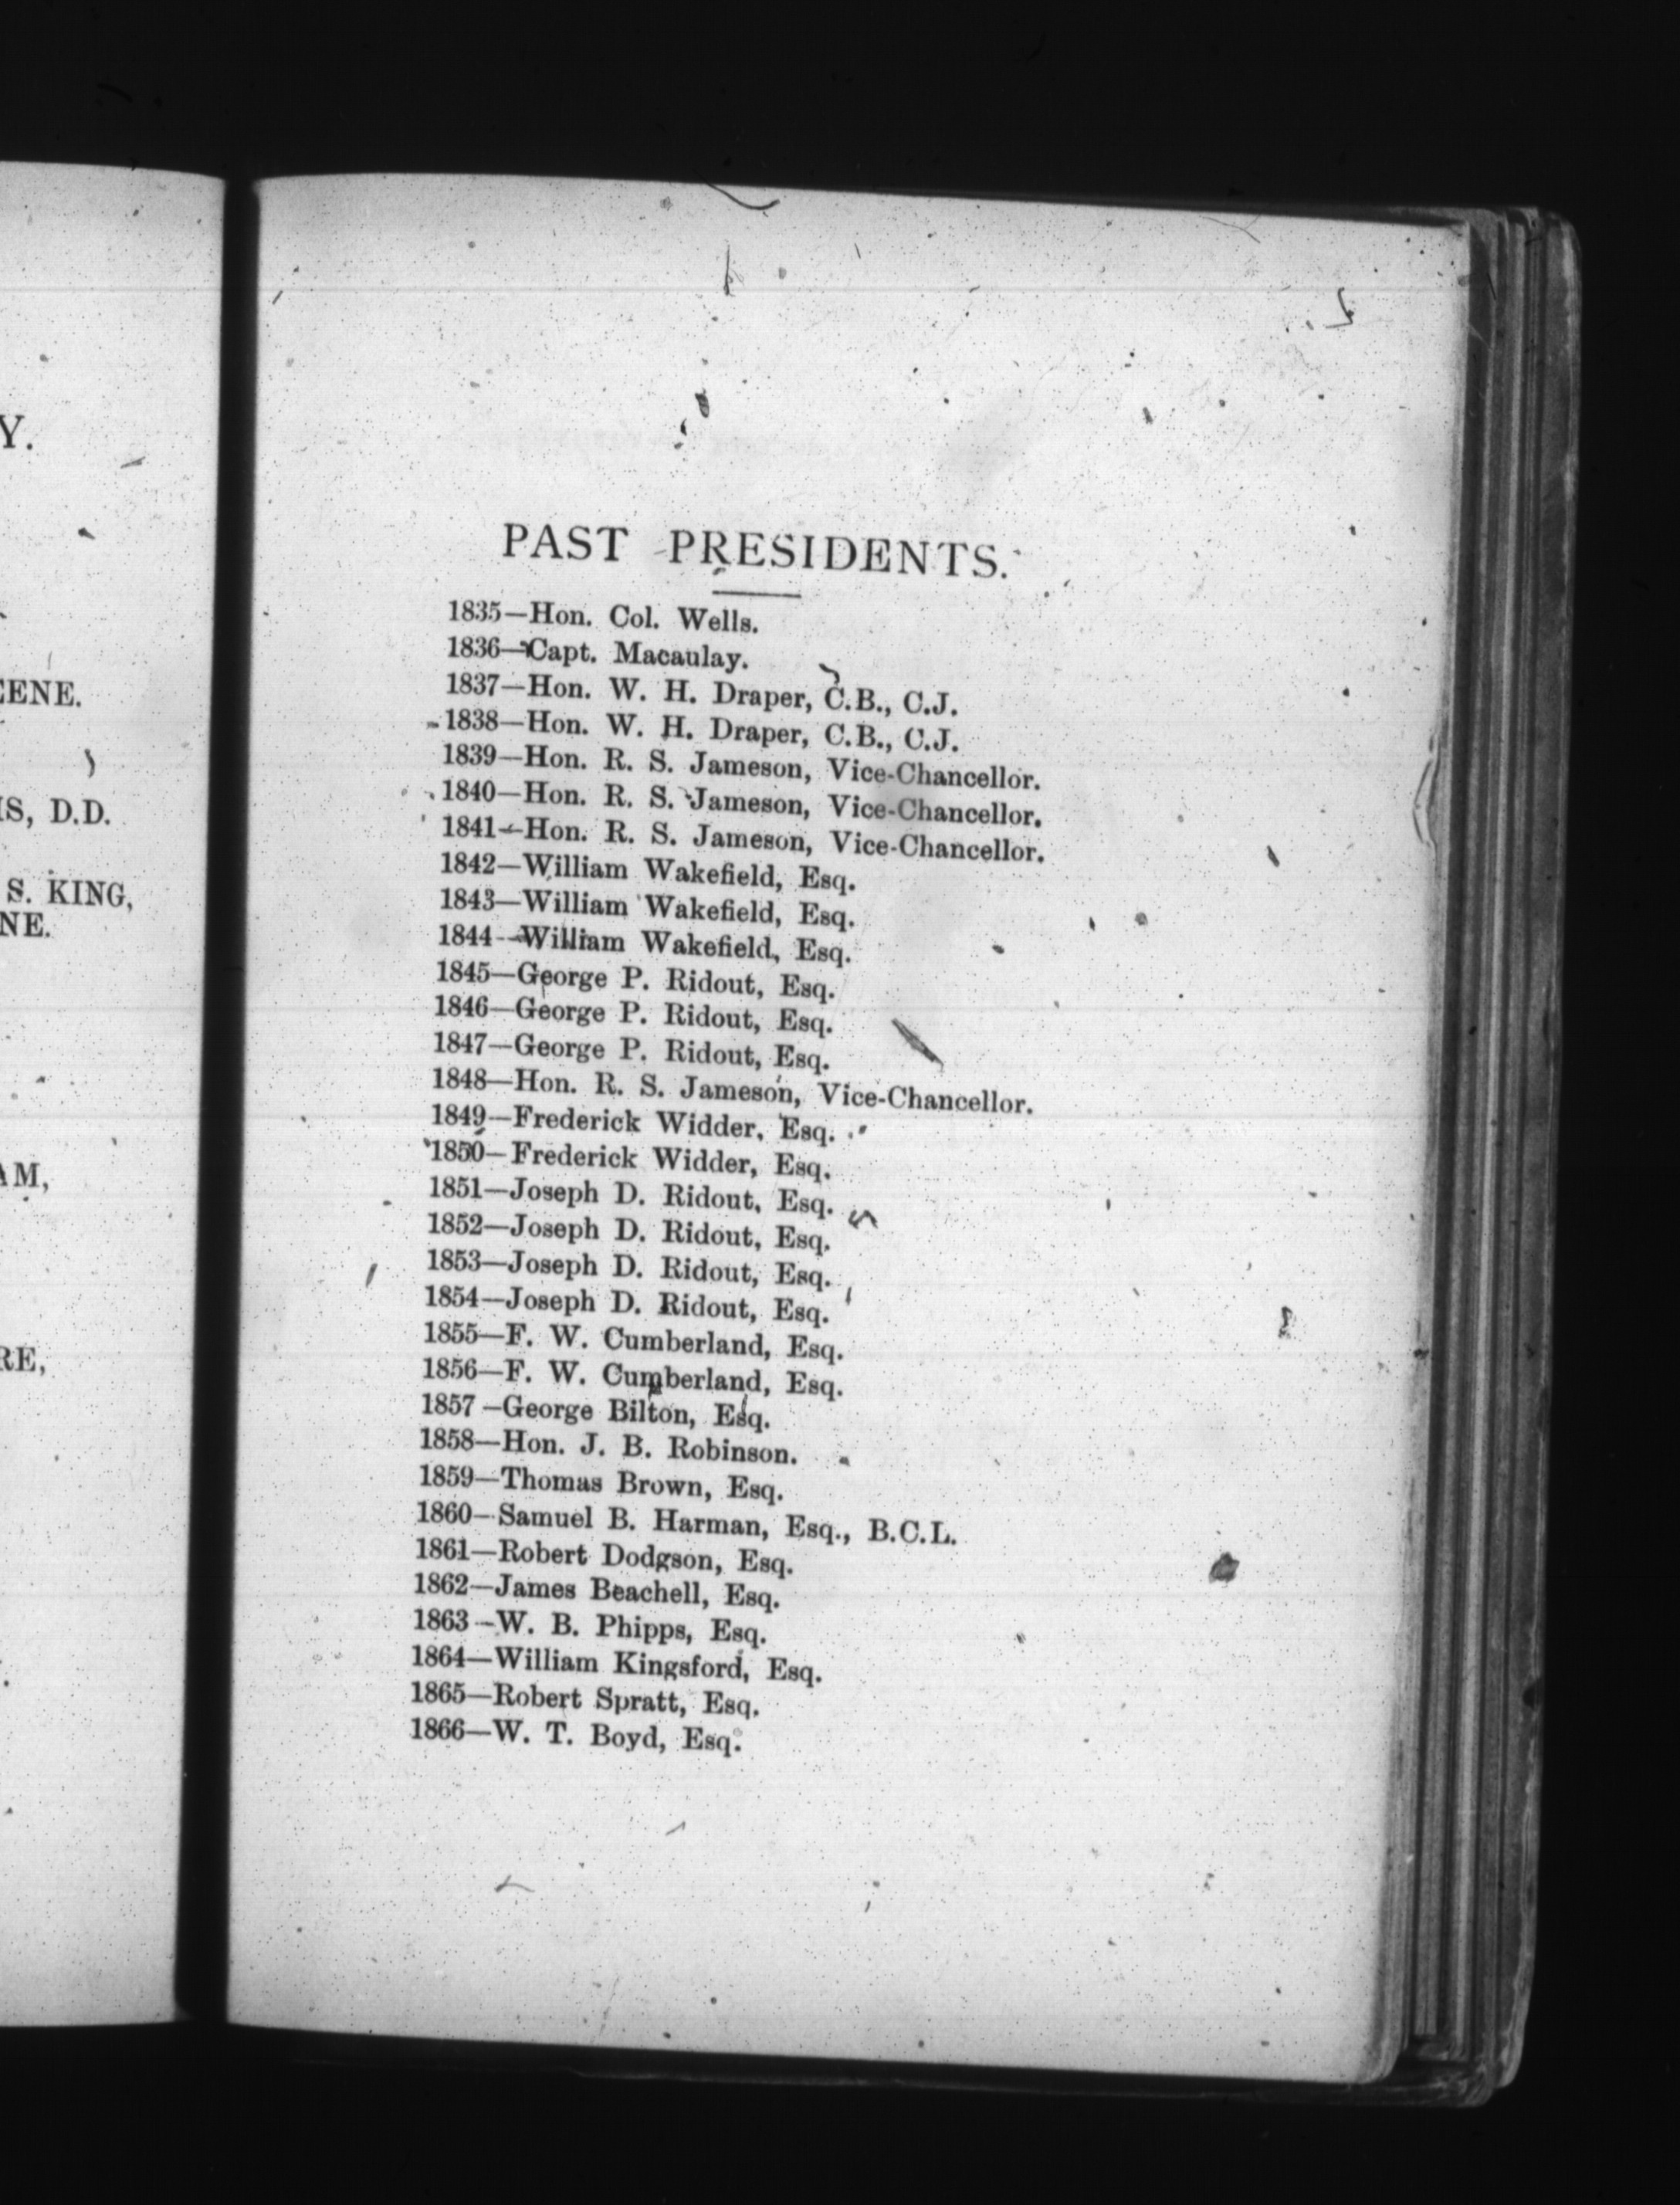 Y.
EENE.
IS, D.D.
S. KING,
NE.
AM,
RE,
PAST PRESIDENTS.
1835—Hon. Col. Wells.
1836—Capt. Macaulay.
1837—Hon. W. H. Draper, C.B., C.J.
1838—Hon. W. H. Draper, C.B., C.J.
1839—Hon. R. S. Jameson, Vice-Chancellor.
1840—Hon. R. S. Jameson, Vice-Chancellor.
1841—Hon. R. S. Jameson, Vice-Chancellor.
1842—William Wakefield, Esq.
1843—William Wakefield, Esq.
1844—William Wakefield, Esq.
1845—George P. Ridout, Esq.
1846—George P. Ridout, Esq.
1847—George P. Ridout, Esq.
1848—Hon. R. S. Jameson, Vice-Chancellor.
1849—Frederick Widder, Esq.
1850—Frederick Widder, Esq.
1851—Joseph D. Ridout, Esq.
1852—Joseph D. Ridout, Esq.
1853—Joseph D. Ridout, Esq.
1854—Joseph D. Ridout, Esq.
1855—F. W. Cumberland, Esq.
1856—F. W. Cumberland, Esq.
1857—George Bilton, Esq.
1858—Hon. J. B. Robinson.
1859—Thomas Brown, Esq.
1860—Samuel B. Harman, Esq., B.C.L.
1861—Robert Dodgson, Esq.
1862—James Beachell, Esq.
1863—W. B. Phipps, Esq.
1864—William Kingsford, Esq.
1865—Robert Spratt, Esq.
1866—W. T. Boyd, Esq.